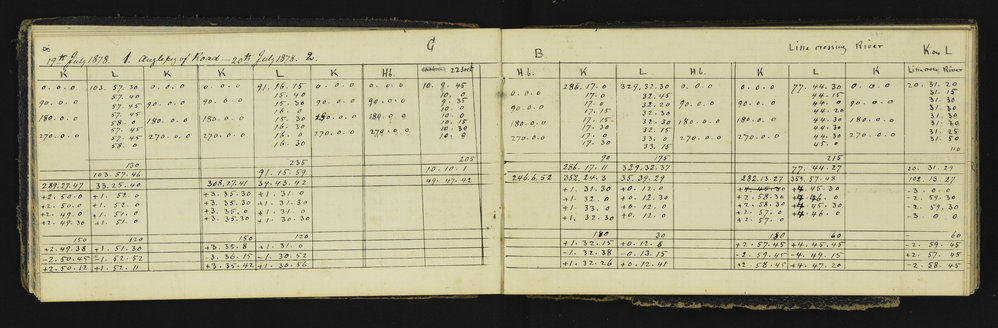 8
19th July 1878. 1. Angle peg of Road — 20th July 1878. 2. G
K L K K L K Hb. 22 Sort
0.0.0 103.57.30 0.0.0 0.0.0 91.16.15 0.0.0 0.0.0 10.9.45
57.40 15.40 10.0
90.0.0 57.45 90.0.0 90.0.0 15.30 90.0.0 90.0.0 9.35
57.45 16.0 10.0
180.0.0 58.0 180.0.0 180.0.0 15.30 180.0.0 180.0.0 10.0
57.45 16.30 10.15
270.0.0 57.45 270.0.0 270.0.0 16.0 270.0.0 270.0.0 10.30
58.0 16.30 10.0
130 235 205
103.57.46 91.15.59 10.10.1
289.27.47 33.25.40 308.27.41 34.43.42 49.47.42
+2.50.0 +1.52.0 +3.35.30 +1.31.0
+2.50.0 +1.52.0 +3.35.30 +1.31.30
+2.49.0 +1.51.0 +3.35.0 +1.31.0
+2.49.30 +1.51.0 +3.35.30 +1.31.0
150 120 150 120
+2.49.38 +1.51.30 +3.35.8 +1.31.0
-2.50.45 -1.52.52 -3.36.15 -1.30.52
+2.50.12 +1.52.11 +3.35.42 +1.30.56
B Line crossing River K on L
H.b. K L H.b. K L K Line cross River
0.0.0 286.17.0 329.32.30 0.0.0 0.0.0 77.44.30 0.0.0 20.31.20
17.0 32.45 44.15 31.15
90.0.0 17.0 32.20 90.0.0 90.0.0 44.0 90.0.0 31.30
17.15 32.30 44.20 31.30
180.0.0 17.15 32.30 180.0.0 180.0.0 44.30 180.0.0 31.30
17.30 32.15 44.30 31.25
270.0.0 17.0 33.0 270.0.0 270.0.0 44.30 270.0.0 31.50
17.30 33.15 45.0 110
90 175 215
286.17.11 329.32.37 77.44.27 20.31.29
246.6.52 352.24.3 35.39.29 282.13.27 359.57.48 102.13.27
+1.31.30 +0.12.0 +4.45.30 +4.45.30 -3.0.0
+1.32.0 +0.12.30 +2.58.30 +4.46.0 -2.59.30
+1.33.0 +0.12.0 +2.58.30 +4.45.30 -2.59.30
+1.32.30 +0.12.0 +2.57.0 +4.46.0 -3.0.0
+2.57.0
180 30 180 60 - 60
+1.32.15 +0.12.8 +2.57.45 +4.45.45 -2.59.45
-1.32.38 -0.13.15 -2.59.45 -4.49.15 +2.57.45
+1.32.26 +0.12.41 +2.58.45 +4.47.20 -2.58.45